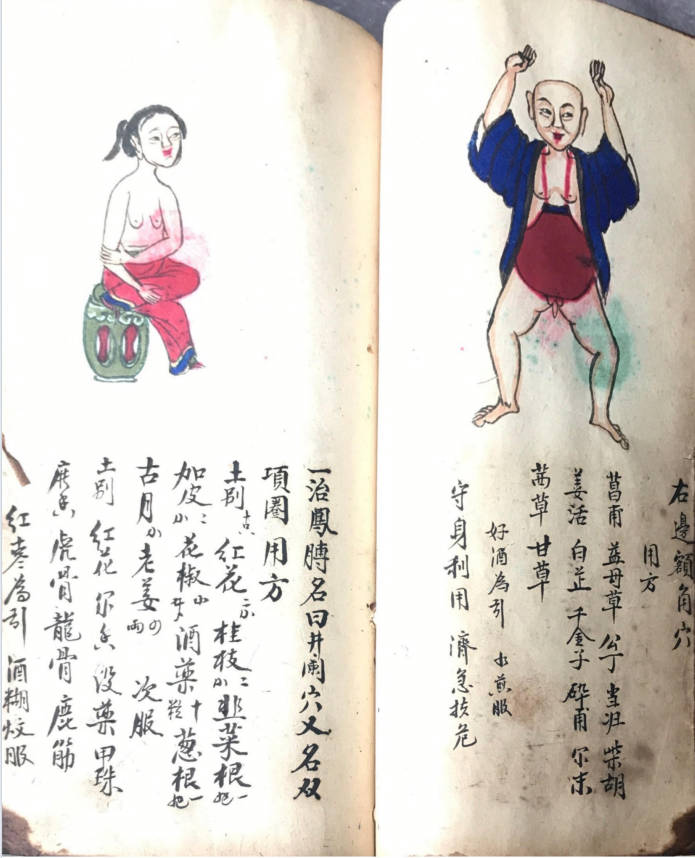 右邊額角穴
用方
菖甫 益母草 公丁 当归 柴胡
姜活 白芷 千金子 碎甫 尔末
茜草 甘草
好酒為引 水煎服
守身利用 濟急扶危
一治鳳膊名曰井阑穴又名双
項圈用方
土别 红花 桂枝 韭菜根
加皮 花椒 酒藥十 葱根
古月 老姜 次服
土别 红花 尔香 没藥 甲珠
麻香 虎骨 龍骨 鹿筋
红枣為引 酒糊炆服